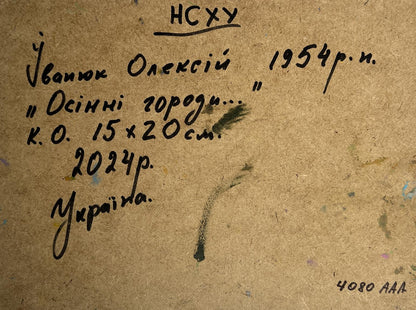 НСХУ
Іванюк Олексій 1954р.н.
„Осінні городи..."
К.О. 15х20см.
2024р.
Україна.
4080 ААА